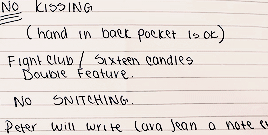 NO KISSING
(hand in back pocket is ok)
Fight Club / Sixteen candles
Double Feature.
NO SNITCHING.
Peter will write Lara Jean a note